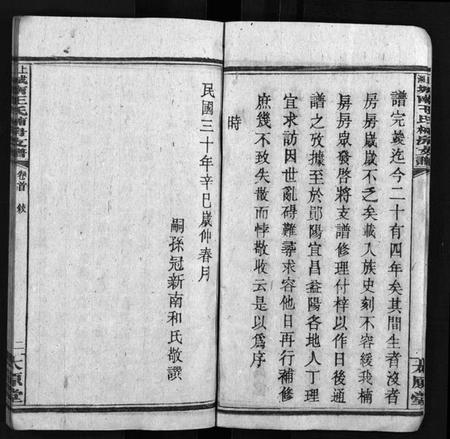 譜完羙迄今二十有四年矣其間生者沒者
房房歲歲不乏矣載入族史刻不容緩我楠
房房眾發啓將支譜修理付梓以作日後通
譜之攷據至於鄖陽宜昌益陽各地人丁理
宜求訪因世亂碍難尋求容他日再行補修
庶幾不致失散而悖敬收云是以爲序
時
民國三十年辛巳歲仲春月
嗣孫冠新南和氏敬譔
卷首
二
太原堂
太原堂